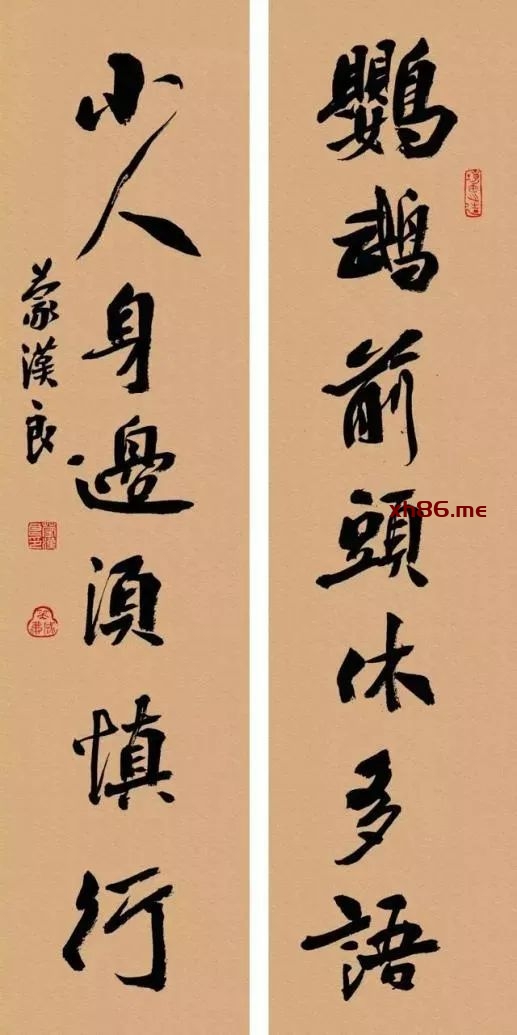 鸚鵡前頭休多語
小人身邊須慎行
蒙漢良
xh86.me